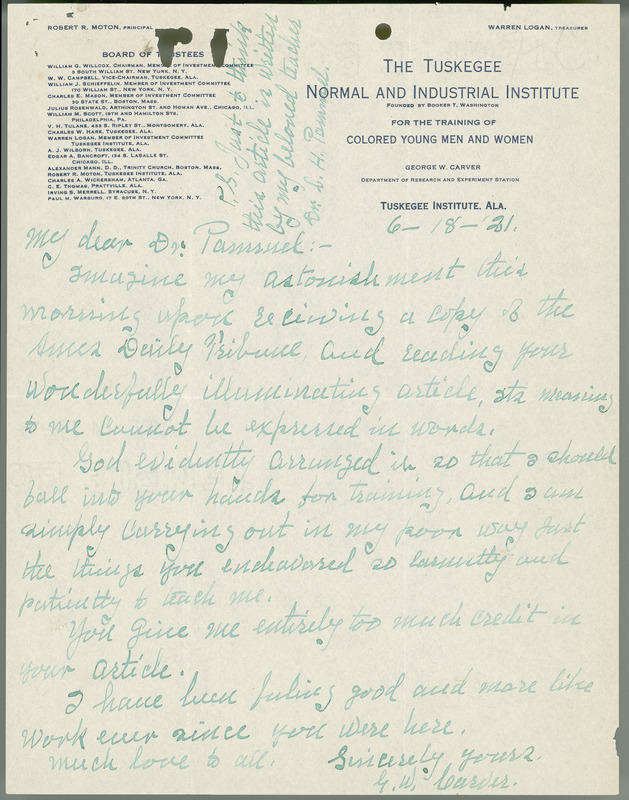 ROBERT R. MOTON, PRINCIPAL
WARREN LOGAN, TREASURER
BOARD OF TRUSTEES
WILLIAM G. WILLCOX, CHAIRMAN, MEMBER OF INVESTMENT COMMITTEE
3 SOUTH WILLIAM ST. NEW YORK, N. Y.
W. W. CAMPBELL, VICE-CHAIRMAN, TUSKEGEE, ALA.
WILLIAM J. SCHIEFFELIN, MEMBER OF INVESTMENT COMMITTEE
170 WILLIAM ST., NEW YORK, N. Y.
CHARLES E. MASON, MEMBER OF INVESTMENT COMMITTEE
30 STATE ST., BOSTON, MASS.
JULIUS ROSENWALD, ARTHINGTON ST. AND HOMAN AVE., CHICAGO, ILL.
WILLIAM M. SCOTT, 18TH AND HAMILTON STS.
PHILADELPHIA, PA.
V. H. TULANE, 453 S. RIPLEY ST., MONTGOMERY, ALA.
CHARLES W. HARE, TUSKEGEE, ALA.
WARREN LOGAN, MEMBER OF INVESTMENT COMMITTEE
TUSKEGEE INSTITUTE, ALA.
A. J. WILBORN, TUSKEGEE, ALA.
EDGAR A. BANCROFT, 134 S. LASALLE ST.
CHICAGO, ILL.
ALEXANDER MANN, D. D., TRINITY CHURCH, BOSTON, MASS.
ROBERT R. MOTON, TUSKEGEE INSTITUTE, ALA.
CHARLES A. WICKERSHAM, ATLANTA, GA.
C. E. THOMAS, PRATTVILLE, ALA.
IRVING S. MERRELL, SYRACUSE, N. Y.
PAUL M. WARBURG, 17 E. 80TH ST., NEW YORK, N. Y.
P.S. Just to think
this article is written
by my beloved teacher
Dr. L. H. Pammel.
THE TUSKEGEE
NORMAL AND INDUSTRIAL INSTITUTE
FOUNDED BY BOOKER T. WASHINGTON
FOR THE TRAINING OF
COLORED YOUNG MEN AND WOMEN
GEORGE W. CARVER
DEPARTMENT OF RESEARCH AND EXPERIMENT STATION
TUSKEGEE INSTITUTE, ALA.
6-18-'21.
My dear Dr. Pammel:-
Imagine my astonishment this
morning upon receiving a copy of the
Ames Daily Tribune, and reading your
wonderfully illuminating article, its meaning
to me cannot be expressed in words.
God evidently arranged it so that I should
fall into your hands for training, and I am
simply carrying out in my poor way just
the things you endeavored so earnestly and
patiently to teach me.
You give me entirely too much credit in
your article.
I have been feeling good and more like
work ever since you were here.
Much love to all.
Sincerely yours.
G. W. Carver.